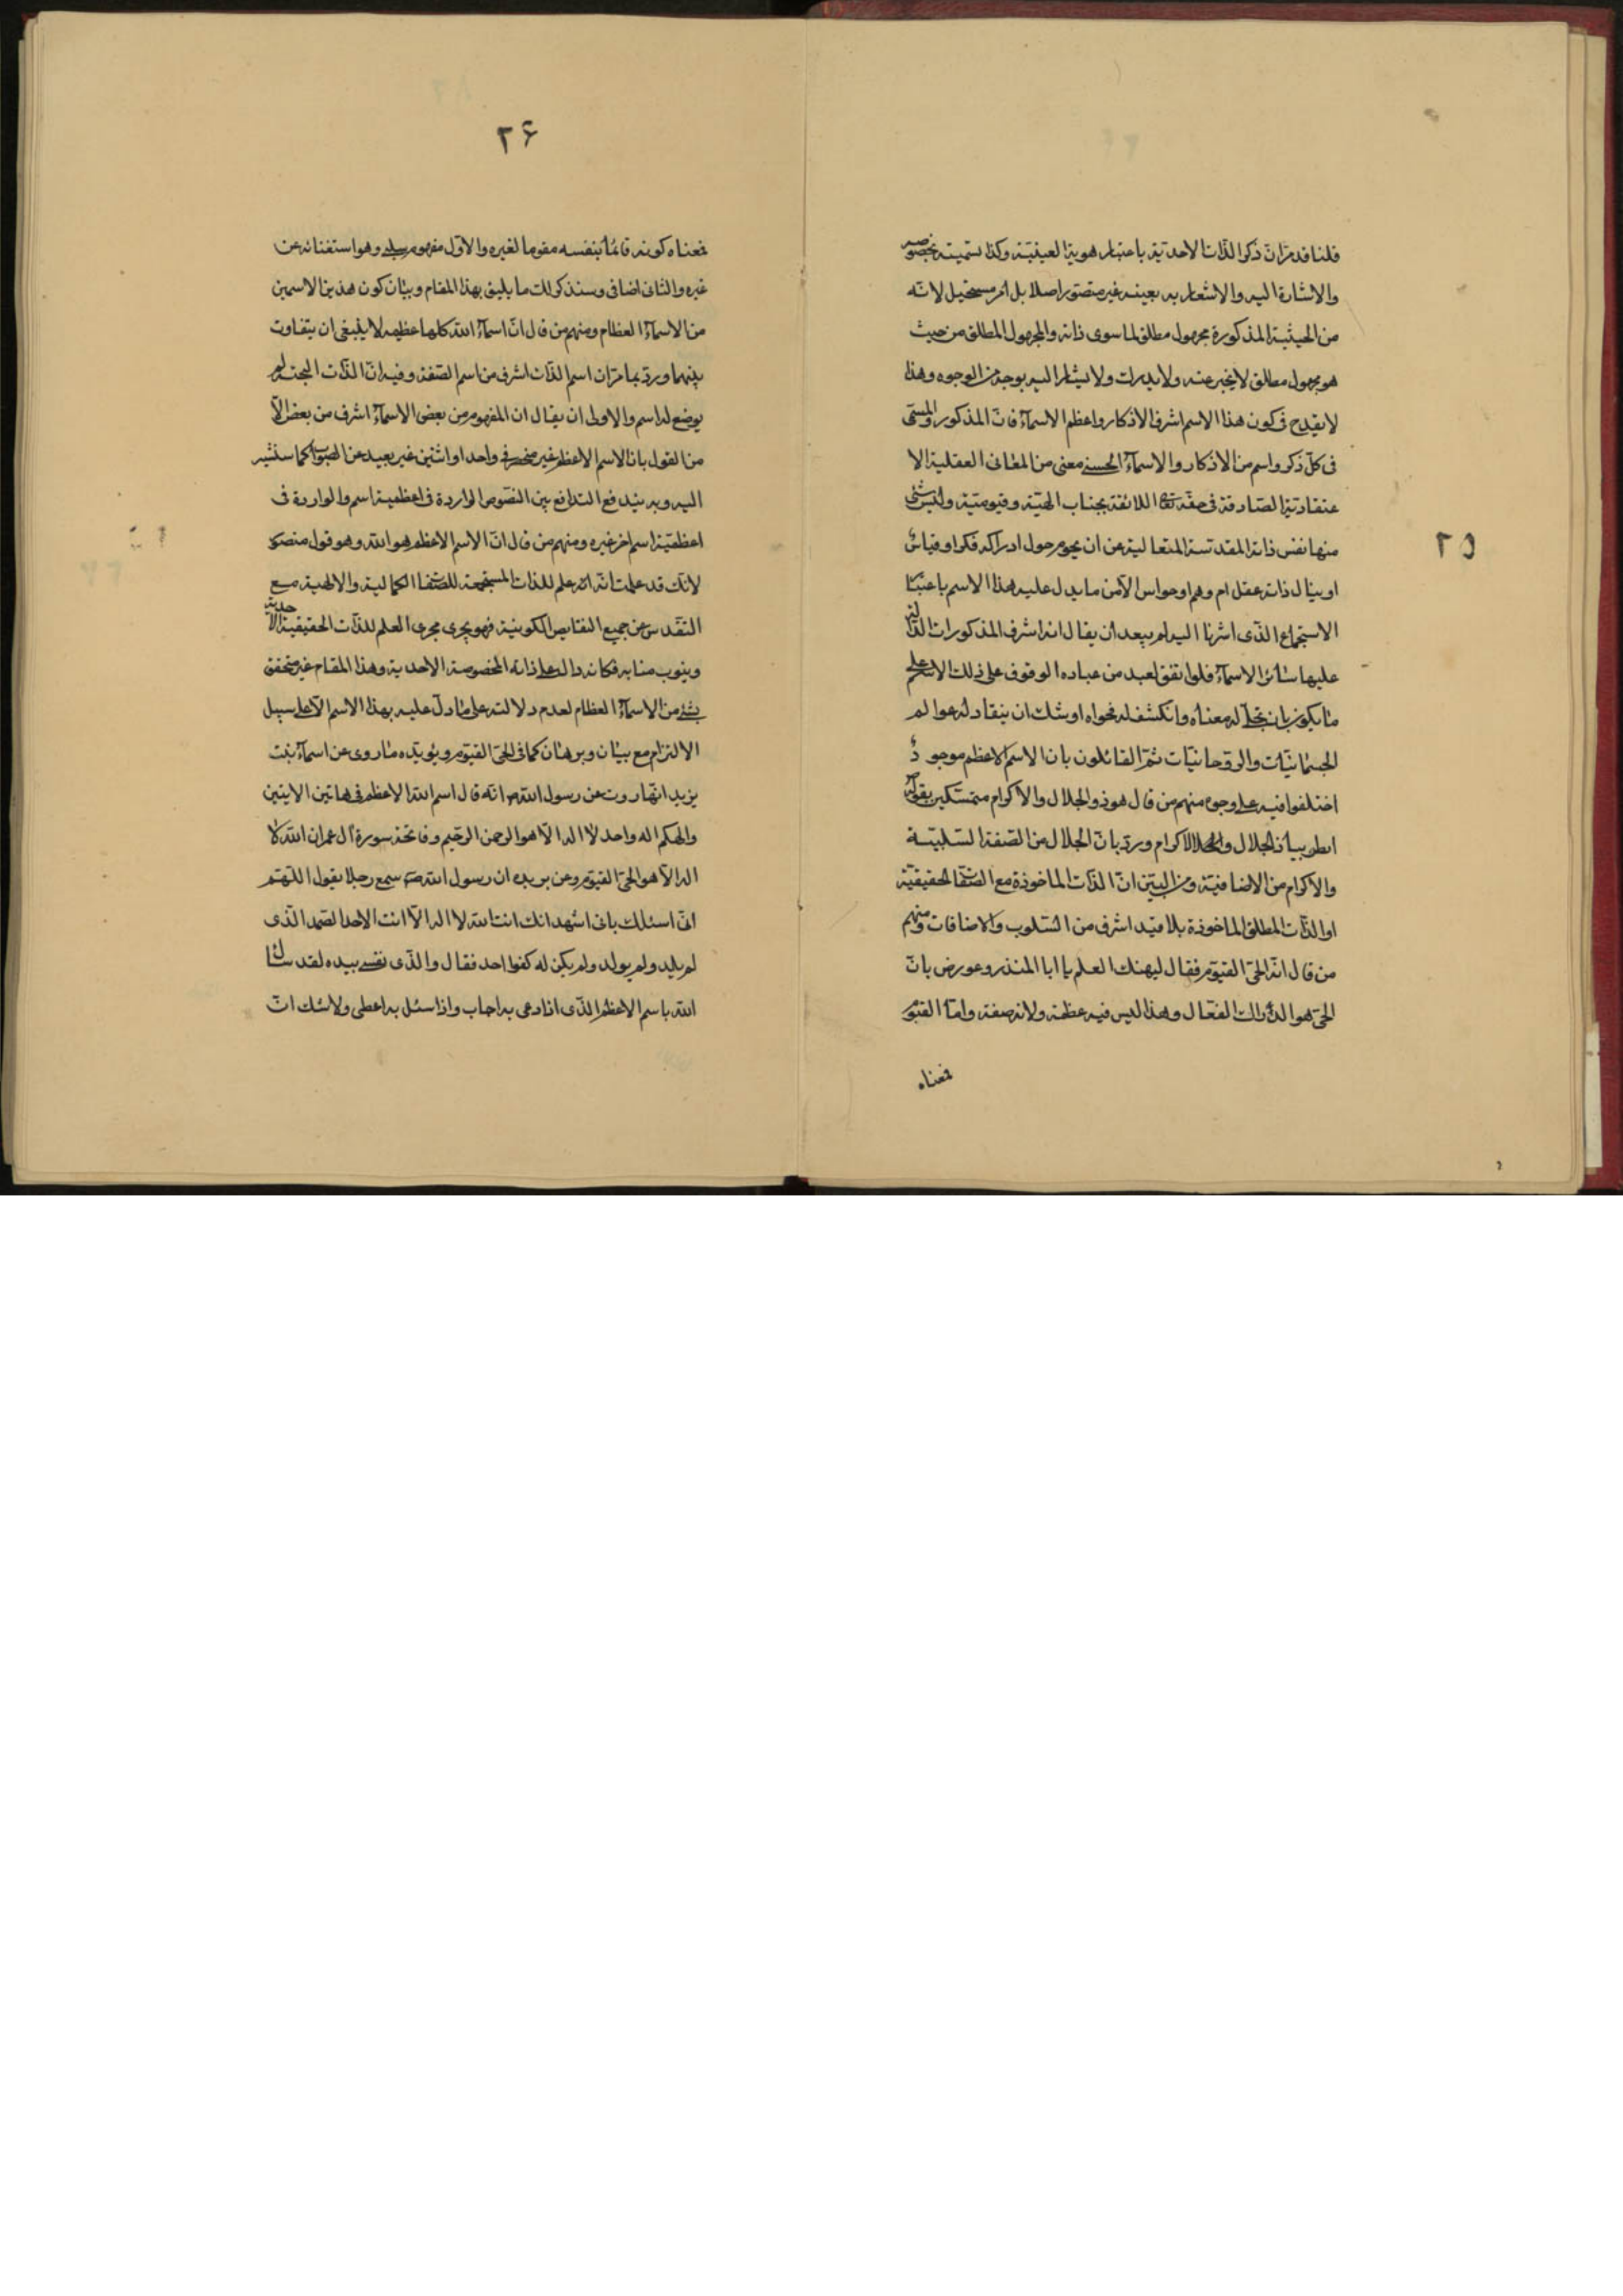 ٢٥
قلنا قد مرّ انّ ذكر الذّات الاحدّية باعتبار هويتها لعينيّة وكذا تسميته بخصوصه
والاشارة اليه والاشعار به بعينه غير متصوّر اصلا بل امر مستحيل لانّه
من الحيثية المذكورة مجهول مطلق لما سوى ذاته والمجهول المطلق من حيث
هو مجهول مطلق لا يخبر عنه ولا يدرك ولا يشار اليه بوجه من الوجوه وهذا
لا يقدح فى كون هذا الاسم اشرف الاذكار واعظم الاسمآء فانّ المذكور والمسمّى
فى كلّ ذكر واسم من الاذكار والاسمآء الحسنى معنى من المعانى العقلية الا
عتقادية الصّادقة فى حقّه تع اللائقة بجناب الهيّته وقيوميّته وليس شئ
منها نفس ذاته المقدّسة المتعالية عن ان يحوم حول ادراكه فكر او قياس
او ينال ذاته عقل ام وهم او حواس الآمن ما يدل عليه هذا الاسم باعتبا
الاستجماع الذّى اشرنا اليه لم يبعد ان يقال انه اشرف المذكورات الدّالة
عليها سائر الاسمآء فلو اتفق لعبد من عباده الوقوف على ذلك الاسم على
ما يكون بان يتجلّى له معناه وانكشف له فحواه اوشك ان ينقاد له عوالم
الجسمانيّات والروّحانيّات ثمّ القائلون بان الاسم الاعظم موجودٌ
اختلفوا فيه على وجوه منهم من قال هو ذو الجلال والاكرام متمسّكين بقوله
الظوا بياذا الجلال والاكرام وردّ بانّ الجلال من الصّفة السّلبيّة
والاكرام من الاضافيّة ومن البيّن انّ الذّات الماخوذة مع الصّفات الحقيقيّة
او الذّات المطلق الماخوذة بلا قيد اشرف من السّلوب والاضافات ومنهم
من قال انّه الحىّ القيّوم فقال ليهنك العلم يا ابا المنذر وعورض بانّ
الحىّ هو الدّراك الفعّال وهذا ليس فيه عظمة ولانه صفة وامّا القيّوم
فمعناه
٢۶
فمعناه كونه قائمًا بنفسه مقوما لغيره والاوّل مفهوم سلبى وهو استغنائه عن
غيره والثانى اضافى وسنذكر لك ما يليق بهذا المقام وبيان كون هذين الاسمين
من الاسمآء العظام ومنهم من قال انّ اسمآء الله كلها عظيمه لا ينبغى ان يتفاوت
بينهما وردّ بما مرّ ان اسم الذّات اشرف من اسم الصّفة وفيه انّ الذّات البحت لم
يوضع له اسم والاولى ان يقال ان المفهوم من بعض الاسمآء اشرف من بعض الآ
من القول بان الاسم الاعظم غير منحصر فى واحد او اثنين غير بعيد عن الصّواب كما سنشير
اليه وبه يندفع التدافع بين النّصوص الواردة فى اعظمية اسم والواردة فى
اعظميّة اسم اخر غيره ومنهم من قال انّ الاسم الاعظم هو الله وهو قول منصور
لانّك قد علمت انّه اسم علم للذات المستجمعة للصّفات الكمالية والالهية مع
التقدّس عن جميع النقايص الكونية فهو يجرى مجرى العلم للذّات الحقيقية الاحدية
وينوب منابه فكانه دالّ على ذاته المخصوصة الاحدية وهذا المقام غير متحقق
بشئ من الاسمآء العظام لعدم دلالته على ما دلّ عليه بهذا الاسم الّا على سبيل
الالتزام مع بيان وبرهان كما فى الحىّ القيّوم ويؤيّده ما روى عن اسمآء بنت
يزيد انّها روت عن رسول الله ص انّه قال اسم الله الاعظم فى هاتين الايتين
والهكم اله واحد لا اله الّا هو الرحمن الرحيم وفاتحة سورة آل عمران الله لا
اله الّا هو الحىّ القيّوم وعن بريده ان رسول الله ص سمع رجلا يقول اللّهّم
انّى اسئلك بانى اشهد انك انت الله لا اله الّا انت الاحد الصّمد الذّى
لم يلد ولم يولد ولم يكن له كفوا احد فقال والذّى نفسى بيده لقد سئل
الله باسم الاعظم الذّى اذا دعى به اجاب واذا سئل به اعطى ولا شك انّ